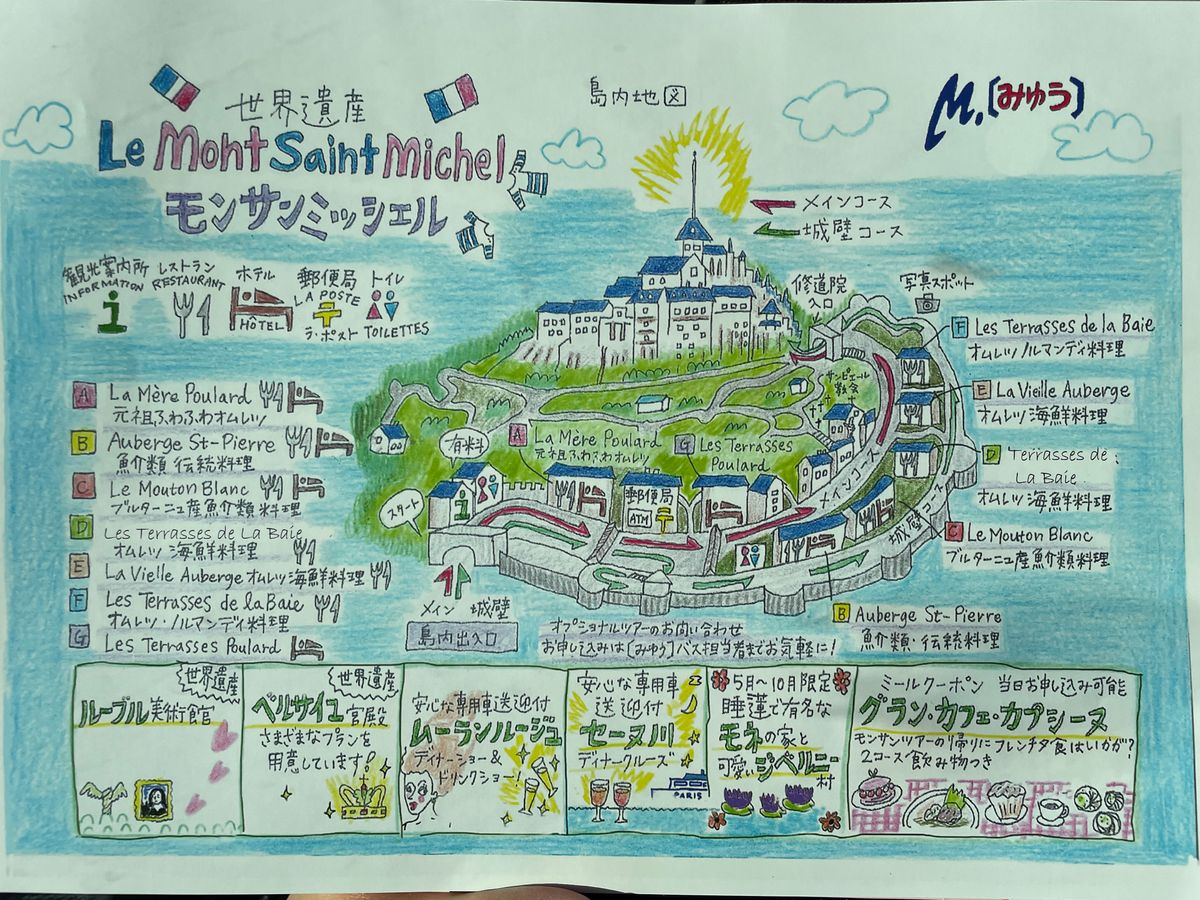 世界遺産
Le Mont Saint Michel
モンサンミッシェル
島内地図
M.[みゅう]
メインコース
城壁コース
観光案内所
INFORMATION
レストラン
RESTAURANT
ホテル
HÔTEL
郵便局
LA POSTE
ラ・ポスト
トイレ
TOILETTES
A La Mère Poulard
元祖ふわふわオムレツ
B Auberge St-Pierre
魚介類 伝統料理
C Le Mouton Blanc
ブルターニュ産魚介類 料理
D Les Terrasses de La Baie
オムレツ 海鮮料理
E La Vielle Auberge オムレツ海鮮料理
F Les Terrasses de la Baie
オムレツ・ノルマンディ料理
G Les Terrasses Poulard
修道院
入口
写真スポット
サンピエール
教会
有料
スタート
A La Mère Poulard
元祖ふわふわオムレツ
G Les Terrasses
Poulard
郵便局
ATM
メインコース
城壁コース
F Les Terrasses de la Baie
オムレツ ノルマンディ料理
E La Vieille Auberge
オムレツ 海鮮料理
D Terrasses de
La Baie
オムレツ 海鮮料理
C Le Mouton Blanc
ブルターニュ産魚介類料理
B Auberge St-Pierre
魚介類・伝統料理
メイン 城壁
島内出入口
オプショナルツアーのお問い合わせ
お申し込みは[みゅう]バス担当者までお気軽に!
世界遺産
ルーブル美術館
世界遺産
ベルサイユ宮殿
さまざまなプランを
用意しています!
安心な専用車送迎付
ムーランルージュ
ディナーショー&
ドリンクショー!
安心な専用車
送迎付
セーヌ川
ディナークルーズ
PARIS
5月〜10月限定
睡蓮で有名な
モネの家と
可愛いジベルニー村
ミールクーポン 当日お申し込み可能
グラン・カフェ・カプシーヌ
モンサンツアーの帰りにフレンチ夕食はいかが?
2コース飲み物つき